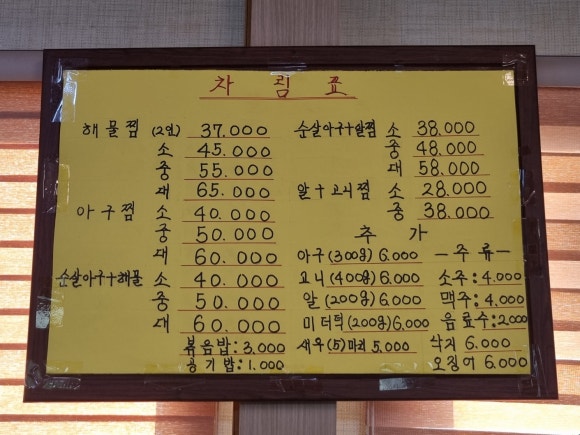 차 림 표
해물찜 (2인) 37.000
소 45.000
중 55.000
대 65.000
아구찜 소 40.000
중 50.000
대 60.000
순살아구+해물 소 40.000
중 50.000
대 60.000
볶음밥:3.000
공기밥:1.000
순살아구+알찜 소 38.000
중 48.000
대 58.000
알+고니찜 소 28.000
중 38.000
추 가
아구(300g) 6.000
고니(400g) 6.000
알(200g) 6.000
미더덕(200g) 6.000
새우(5)마리 5.000
-주류-
소주:4.000
맥주:4.000
음료수:2.000
낙지 6.000
오징어 6.000